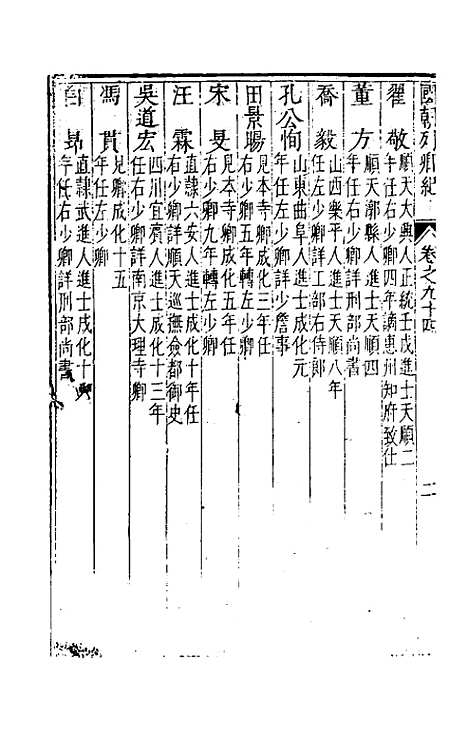 國朝列卿紀 卷之九十四 二
翟敬
順天大興人正統壬戌進士天順二
年任右少卿四年謫惠州知府致仕
董方
順天漷縣人進士天順四
年任右少卿詳刑部尚書
喬毅
山西樂平人進士天順八年
任左少卿詳工部右侍郎
孔公恂
山東曲阜人進士成化元
年任左少卿詳少詹事
田景暘
見本寺卿成化三年任
右少卿五年轉左少卿
宋旻
見本寺卿成化五年任
右少卿九年轉左少卿
汪霖
直隷六安人進士成化十年任
右少卿詳順天巡撫僉都御史
吳道宏
四川宜賓人進士成化十三年
任右少卿詳南京大理寺卿
馮貫
見卿成化十五
年任左少卿
白昻
直隷武進人進士成化十
年任右少卿詳刑部尚書